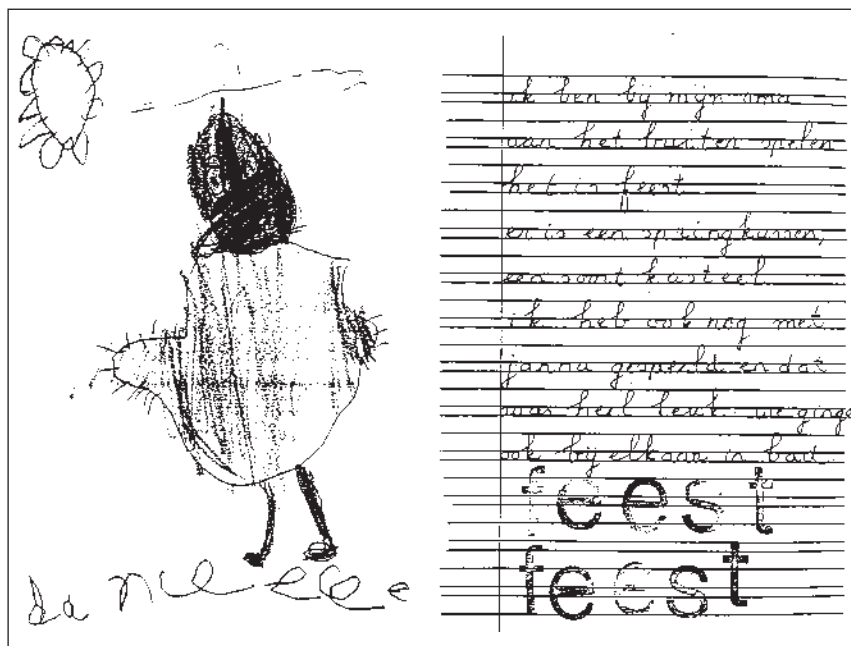 ik ben bij mijn oma
aan het buiten spelen
het is feest
er is een springkussen,
een soort kasteel
ik heb ook nog met
janna gespeeld en dat
was heil leuk. we ginge
ook bij elkaar in bad
feest
feest